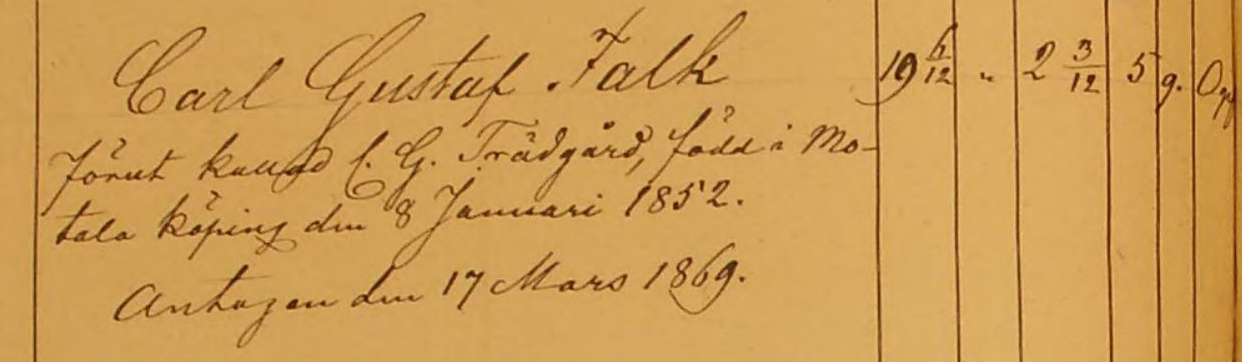 Carl Gustaf Falk 19 6/12 " 2 3/12 5 g.
förut kallad C. G. Trädgård, född i Mo-
tala köping den 8 Januari 1852.
Antagen den 17 Mars 1869.